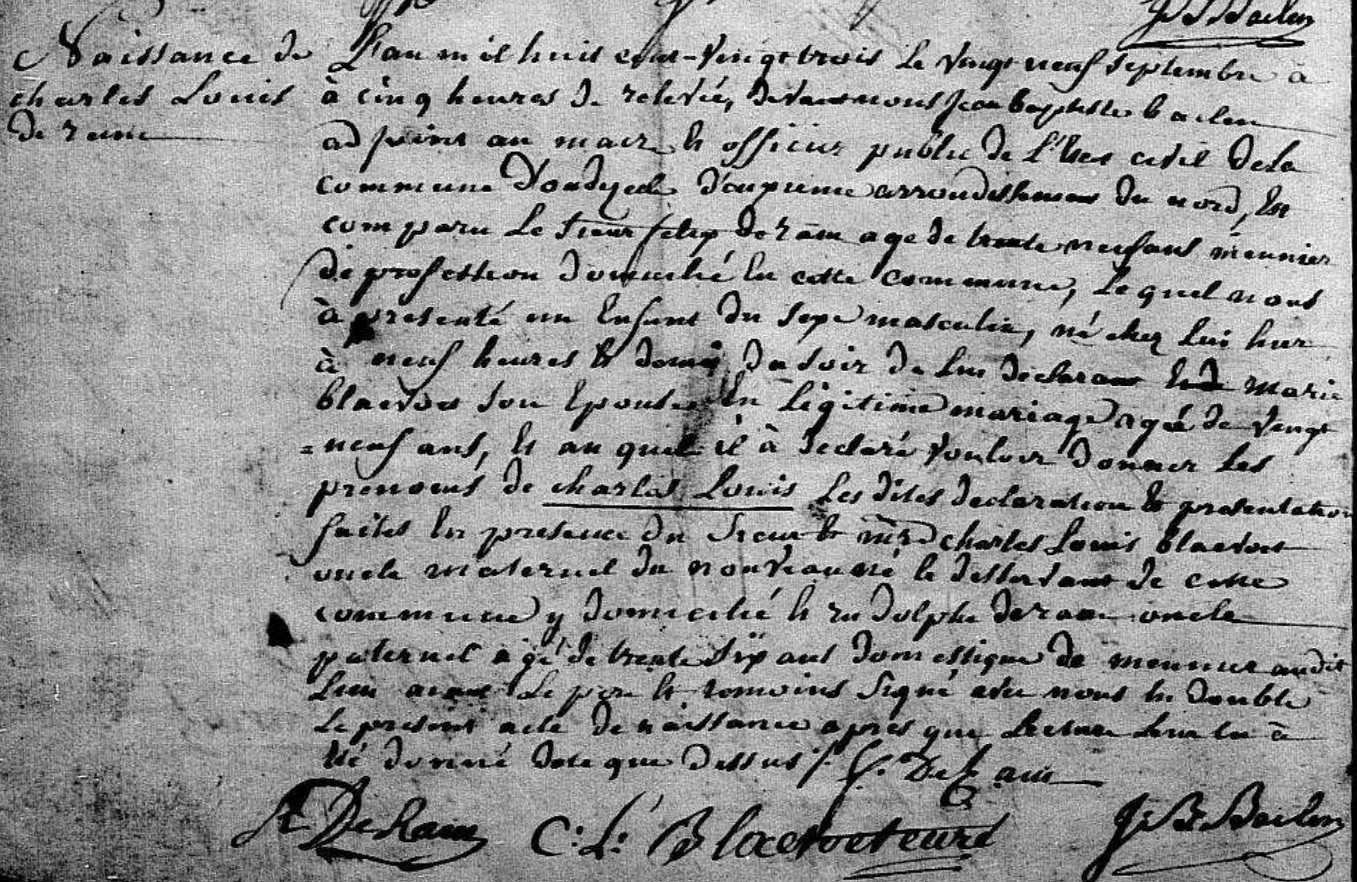 J B Baclen
Naissance de
charles Louis
de ram
L'an mil huit cent-vingt trois le vingt neuf septembre à
à cinq heures de relevée, devant nous Jean baptiste baclen
adjoint au maire et officier public de l'Etat civil de la
commune d'oudezeele, canton arrondissement du nord, Est
comparu le Sieur felix deram age de trente neuf ans meunier
de profession domicilié En cette commune, lequel nous
à presenté un Enfant du sexe masculin, né chez lui hier
à neuf heures et demie du soir de lui declarant Et de marie
blaevoet son Epouse En légitime mariage agée de vingt
=neuf ans, Et au quel il à declaré vouloir donner les
prenoms de charles Louis les dites declaration et presentation
faites En presence du Sieur et charles Louis blaevoet
oncle maternel du nouveau né le desservant de cette
commune y domicilié et rudolphe deram oncle
paternel àgé de trente six ans domestique de meunier audit
lieu ayant le pere et temoins signé avec nous En double
le present acte de naissance après que lecture leur En à
Eté donné date que dessus /. f. De Ram
R DeRam C: L: Blaevoet J B Baclen